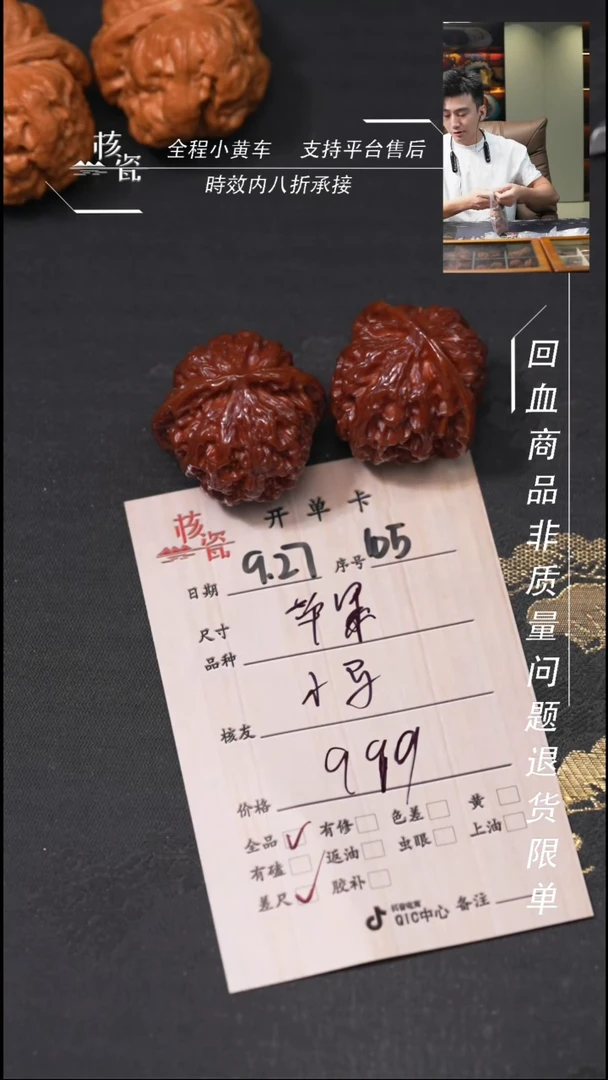 核瓷
全程小黄车 支持平台售后
時效内八折承接
回血商品非质量问题退货限单
核瓷
开单卡
日期 9.27 序号 165
尺寸
品种 苹果
核友 小马
价格 999
全品 ✓ 有修 色差 黄
有磕 返油 虫眼 上油
差尺 ✓ 胶补
抖音电商
QIC中心 备注